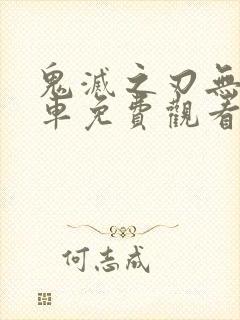 鬼滅之刃無
車免費觀看
何志成